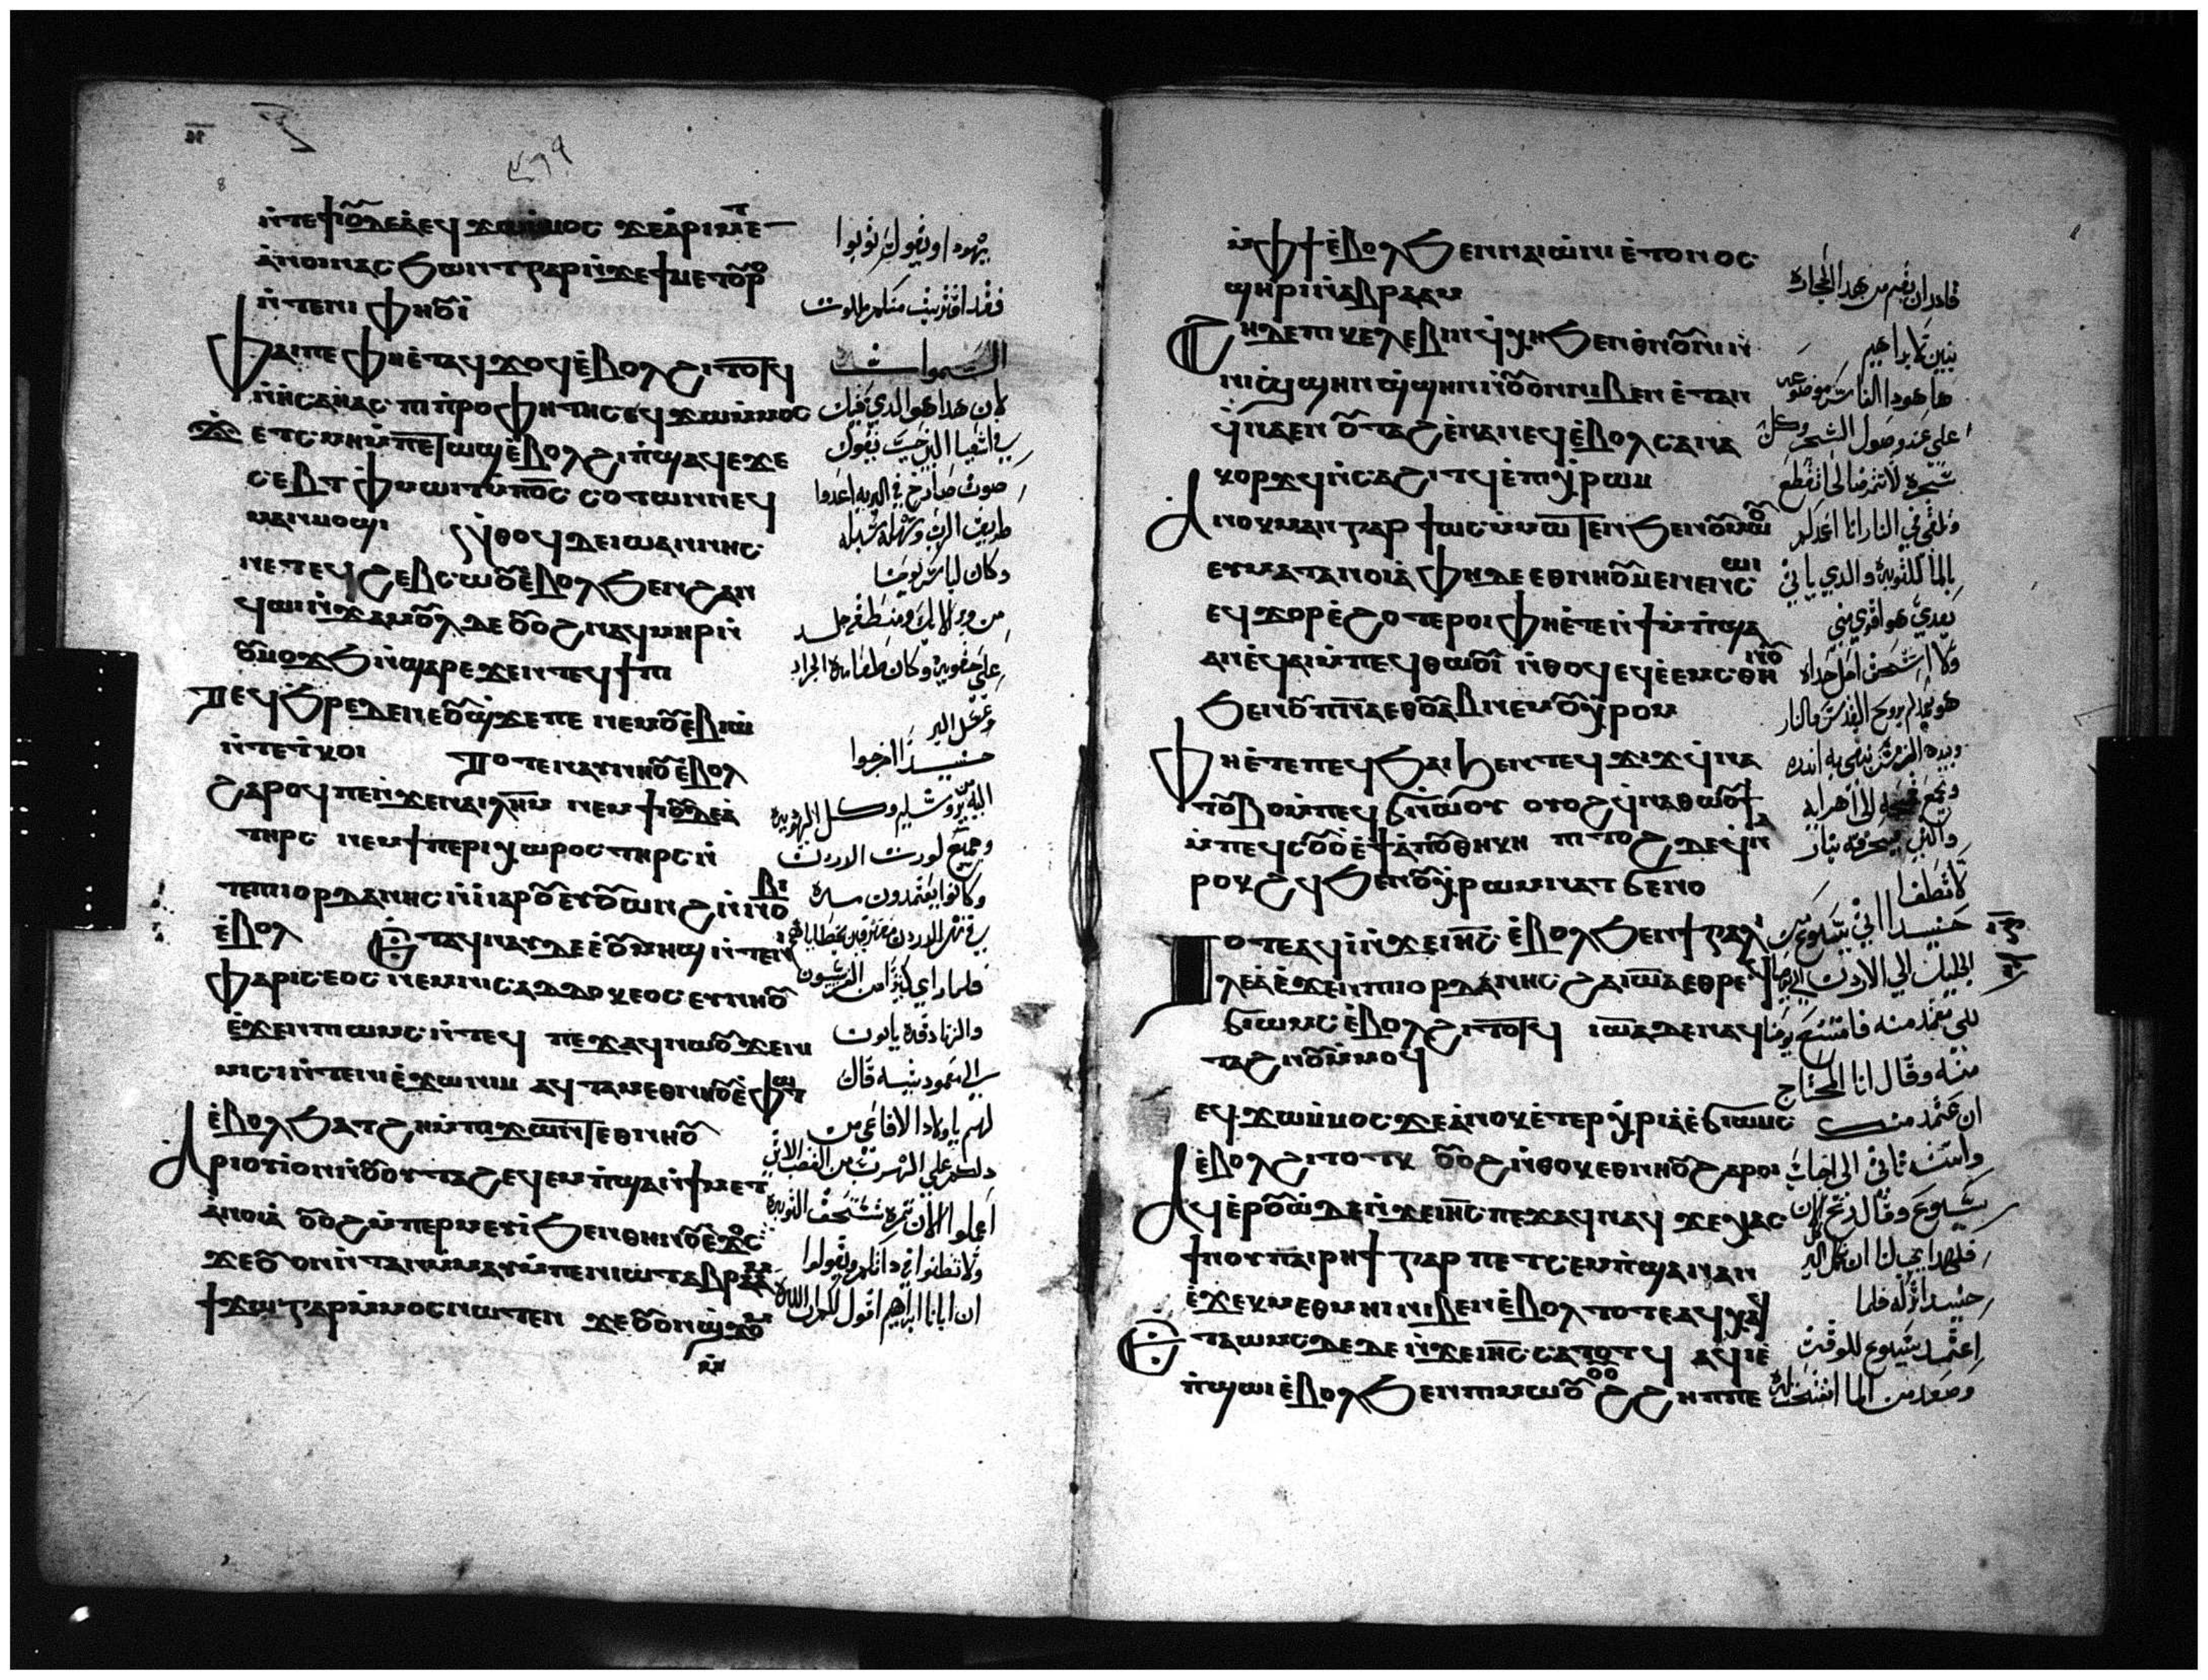 ⲛ̀ⲧⲉϯⲓⲟⲩⲇⲉⲁ ⲉϥϫⲱⲙ̀ⲙⲟⲥ ϫⲉⲁ̀ⲣⲓⲙⲉⲧ
ⲁ̀ⲛⲟⲓⲛ ⲁⲥϧⲱⲛⲧ ⲅⲁⲣ ⲛ̀ϫⲉϯⲙⲉⲧⲟⲩⲣⲟ
ⲛ̀ⲧⲉⲛⲓ ⲫⲏⲟⲩⲓ̀
ⲫⲁⲓⲡⲉ ⲫⲏⲉ̀ⲧⲁϥϫⲟϥ ⲉ̀ⲃⲟⲗϩⲓⲧⲟⲧϥ
ⲛ̀ⲏⲥⲁⲏⲁⲥ ⲡⲓⲡ̀ⲣⲟⲫⲏⲧⲏⲥ ⲉϥϫⲱⲙ̀ⲙⲟⲥ
ϫⲉ ⲧⲥⲙⲏ ⲙ̀ⲡⲉⲧⲱϣ ⲉ̀ⲃⲟⲗϩⲓⲡ̀ϣⲁϥⲉ ϫⲉ
ⲥⲉⲃⲧ ⲫⲙⲱⲓⲧ ⲙ̀ⲡⲟ̅ⲥ̅ ⲥⲟⲩⲧⲱⲛⲛⲉϥ
ⲙⲁⲛⲙⲟϣⲓ ⲛ̀ⲑⲟϥ ⲇⲉ ⲓⲱⲁⲛⲛⲏⲥ
ⲛⲉⲧⲉϥϩⲉⲃⲥⲱ ⲟⲩⲉ̀ⲃⲟⲗϧⲉⲛϩⲁⲛ
ϥⲱⲓ ⲛ̀ϫⲁⲙⲟⲩⲗ ⲇⲉ ⲟⲩⲟϩ ⲛⲁϥⲙⲏⲣ ⲛ̀
ⲟⲩⲙⲟϫϧ ⲛ̀ϣⲁⲣ ⲉϫⲉⲛⲧⲉϥϯⲡⲓ
ⲧⲉϥϧⲣⲉ ⲇⲉ ⲛⲉⲟⲩϣϫⲉ ⲡⲉ ⲛⲉⲙⲟⲩⲉⲃⲓⲱ̀
ⲛ̀ⲧⲉⲧ̀ⲕⲟⲓ ⲧⲟⲧⲉ ⲛⲁⲩⲛⲏⲟⲩ ⲉ̀ⲃⲟⲗ
ϩⲁⲣⲟϥ ⲡⲉ ⲛ̀ϫⲉⲛⲁⲓⲗ̅ⲏ̅ⲙ̅ ⲛⲉⲙϯⲓⲟⲩⲇⲉⲁ
ⲧⲏⲣⲥ ⲛⲉⲙϯⲡⲉⲣⲓⲭⲱⲣⲟⲥ ⲧⲏⲣⲥ ⲛ̀
ⲧⲉⲡⲓⲓⲟⲣⲇⲁⲛⲏⲥ ⲛ̀ⲓⲁⲣⲟ ⲉⲩⲟⲩⲱⲛϩ ⲛ̀ⲛⲟⲩⲛⲟⲃⲓ
ⲉ̀ⲃⲟⲗ ⲉⲧⲁϥⲛⲁⲩ ⲇⲉ ⲉ̀ⲟⲩⲙⲏϣ ⲛ̀ⲧⲉⲛⲓ
ⲫⲁⲣⲓⲥⲉⲟⲥ ⲛⲉⲙⲛⲓⲥⲁⲇⲇⲟⲩⲕⲉⲟⲥ ⲉⲩⲛⲏⲟⲩ
ⲉ̀ϫⲉⲛⲡⲓⲱⲙⲥ ⲛ̀ⲧⲉϥ ⲡⲉϫⲁϥ ⲛⲱⲟⲩ ϫⲉⲛⲓ
ⲙⲓⲥⲓ ⲛ̀ⲧⲉⲛⲓⲉ̀ϫⲱ ⲛⲓⲙ ⲁϥⲧⲁⲙⲉⲑⲏⲛⲟⲩ ⲉ̀ⲫⲱⲧ
ⲉ̀ⲃⲟⲗϧⲁⲧϩⲏ ⲙ̀ⲡⲓϫⲱⲛⲧ ⲉⲑⲛⲏⲟⲩ
ⲁⲣⲓⲟⲩⲓ̀ ⲟⲩⲛ ⲛ̀ⲟⲩⲟⲩⲧⲁϩ ⲉϥⲉⲙⲡ̀ϣⲁ ⲛ̀ϯⲙⲉⲧ
ⲁ̀ⲛⲟⲓⲁ̀ ⲟⲩⲟϩ ⲙ̀ⲡⲉⲣⲙⲉⲩⲓ̀ ϧⲉⲛⲑⲏⲛⲟⲩ ⲉ̀ϫⲟⲥ
ϫⲉⲟⲩⲟⲛⲛ̀ⲧⲁⲛ ⲙ̀ⲙⲁⲩ ⲙ̀ⲡⲉⲛⲓⲱⲧ ⲁⲃⲣⲁⲁⲙ
ϯϫⲱ ⲅⲁⲣ ⲙ̀ⲙⲟⲥ ⲛⲱⲧⲉⲛ ϫⲉⲟⲩⲟⲛϣ̀ϫⲟⲙ
يهودا ويقول توبوا
فقد اقتربت منكم ملكوت
السموات
لان هدا هو الدي قيل
في اشعيا النبي حيث يقول
صوت صارخ في البريه اعدوا
طريق الرب وسهلوا سبله
وكان لباس يوحنا
من وبر الابل ومنطقة جلد
علي حقويه وكان طعامه الجراد
وعسل البر
حينيد اخرجوا
اليه يروشليم وكل اليهوديه
وجميع كورت الاردن
وكانوا يعتمدون منه
في نهر الاردن معترفين بخطاياهم
فلما راي كثيرا من الفريسيون
والزنادقه ياتون
الي معموديته قال
لهم ياولاد الافاعي من
دلكم علي الهرب من الغضب الاتي
اعملوا الان ثمره تستحق التوبه
ولا تظنوا في داتكم وتقولوا
ان ابانا ابرهيم اقول لكم ان الله
ⲙ̀ⲫϯ ⲉ̀ⲃⲟⲗϧⲉⲛⲛⲁⲓⲱⲛⲓ ⲉ̀ⲧⲟⲩⲛⲟⲥ
ϣⲏⲣⲓ ⲛ̀ⲁⲃⲣⲁⲁⲙ
ϩⲏⲇⲉ ⲡⲓⲕⲉⲗⲉⲃⲓⲛ ϥ̀ⲭⲏ ϧⲉⲛⲑⲛⲟⲩⲛⲓ ⲛ̀
ⲛⲓϣ̀ϣⲏⲛ ϣ̀ϣⲏⲛ ⲟⲩⲟⲛ ⲛⲓⲃⲉⲛ ⲉ̀ⲧⲉⲛ
ϥ̀ⲛⲁⲉⲛ ⲟⲩⲧⲁϩ ⲉ̀ⲛⲁⲛⲉϥ ⲉ̀ⲃⲟⲗ ⲥⲉⲛⲁ
ⲕⲟⲣϫϥ ⲛ̀ⲥⲉϩⲓⲧϥ ⲉ̀ⲡⲓⲭ̀ⲣⲱⲙ
ⲁⲛⲟⲕ ⲙⲉⲛ ⲅⲁⲣ ϯⲱⲙⲥ ⲙ̀ⲙⲱⲧⲉⲛ ϧⲉⲛⲟⲩⲙⲱⲟⲩ
ⲉⲩⲙⲉⲧⲁⲛⲟⲓⲁ̀ ⲫⲏ ⲇⲉ ⲉⲑⲛⲏⲟⲩ ⲙⲉⲛⲉⲛⲥⲱⲓ
ⲉϥϫⲟⲣ ⲉ̀ϩⲟⲧⲉⲣⲟⲓ ⲫⲏⲉ̀ⲧⲉⲛ̀ϯⲙ̀ⲡ̀ϣⲁ
ⲁⲛ ⲉ̀ϥⲁⲓ ⲙ̀ⲡⲉϥⲑⲱⲟⲩⲓ̀ ⲛ̀ⲑⲟϥ ⲉϥⲉ̀ⲉⲙⲥ ⲑⲏⲛⲟⲩ
ϧⲉⲛⲟⲩⲡ̅ⲛ̅ⲁ̅ ⲉⲑⲟⲩⲁⲃ ⲛⲉⲙⲟⲩⲭ̀ⲣⲱⲙ
ⲫⲏⲉ̀ⲧⲉⲡⲉϥϧⲁⲓ ϧⲉⲛⲧⲉϥϫⲓϫ ϥ̀ⲛⲁ
ⲧⲟⲩⲃⲟ ⲙ̀ⲡⲉϥϭⲛⲱⲟⲩ ⲟⲩⲟϩ ϥ̀ⲛⲁⲑⲱⲟⲩϯ
ⲙ̀ⲡⲉϥⲥⲟⲩⲟ ⲉ̀ϯⲁ̀ⲡⲟⲑⲏⲕⲏ ⲡⲓⲧⲟϩ ⲇⲉ ϥ̀ⲛⲁ
ⲣⲟⲕϩϥ ϧⲉⲛⲟⲩⲭ̀ⲣⲱⲙ ⲛ̀ⲁⲧϭⲉⲛⲟ
ⲧⲟⲧⲉ ⲁϥⲓ̀ ⲛ̀ϫⲉⲓⲏ̅ⲥ̅ ⲉ̀ⲃⲟⲗϧⲉⲛϯⲅⲁⲗⲓ
ⲗⲉⲁ̀ ⲉ̀ϫⲉⲛⲡⲓⲓⲟⲣⲇⲁⲛⲏⲥ ϩⲁⲓⲱ̅ⲁ̅ ⲉⲑⲣⲉϥ
ϭⲓⲱⲙⲥ ⲉ̀ⲃⲟⲗϩⲓⲧⲟⲧϥ ⲓⲱ̅ⲁ̅ ⲇⲉ ⲛⲁϥ
ⲧⲁϩⲛⲟ ⲙ̀ⲙⲟϥ
ⲉϥϫⲱⲙ̀ⲙⲟⲥ ϫⲉⲁ̀ⲛⲟⲕ ⲉ̀ⲧⲉⲣⲭ̀ⲣⲓⲁ ⲉ̀ϭⲓⲱⲙⲥ
ⲉ̀ⲃⲟⲗϩⲓⲧⲟⲧⲕ ⲟⲩⲟϩ ⲛ̀ⲑⲟⲕ ⲉⲑⲛⲏⲟⲩ ϩⲁⲣⲟⲓ
ⲁϥⲉ̀ⲣⲟⲩⲱ̀ ⲇⲉ ⲛ̀ϫⲉⲓⲏ̅ⲥ̅ ⲡⲉϫⲁϥ ⲛⲁϥ ϫⲉⲭⲁⲥ
ϯⲛⲟⲩ ⲡⲁⲓⲣⲏϯ ⲅⲁⲣ ⲡⲉⲧⲥⲉⲙⲡ̀ϣⲁ ⲛⲁⲛ
ⲉ̀ϫⲉⲕ ⲙⲉⲑⲙⲏⲓ ⲛⲓⲃⲉⲛ ⲉ̀ⲃⲟⲗ ⲧⲟⲧⲉ ⲁϥⲭⲁϥ
ⲉⲧⲁϥϭⲓⲱⲙⲥ ⲇⲉ ⲛ̀ϫⲉⲓⲏ̅ⲥ̅ ⲥⲁⲧⲟⲧϥ ⲁϥⲓ̀ ⲉ̀
ⲡ̀ϣⲱⲓ ⲉ̀ⲃⲟⲗϧⲉⲛⲡⲓⲙⲱⲟⲩ ⲟⲩⲟϩ ϩⲏⲡⲡⲉ
قادر ان يقيم من هده الحجاره
بنين لابراهيم
ها هودا الفاس موضوعه
علي عند وصول الشجر وكل
شجره لا تثمر صالحا تقطع
وتلقي في النار انا اعمدكم
بالما للتوبه والدي ياتي
بعدي هو اقوي مني
ولا استحق احمل حداه
هو يعمدكم بروح القدس والنار
وبيده المرفش ينقي به اندره
ويجمع قمحه الي اهرايه
والتبن يحرقه بنار
لا تطفا
حينيدا اتي يسوع من
الجليل الي الاردن الي يوحنا
لكي يعتمد منه فامتنع يوحنا
منه وقال انا المحتاج
ان اعتمد منك
وانت تاتي الي اجاب
يسوع وقال دع الان
فهكدا يجب لنا ان نكمل البر
حينيد اتركه فلما
اعتمد يسوع للوقت
وصعد من الما انفتحت له